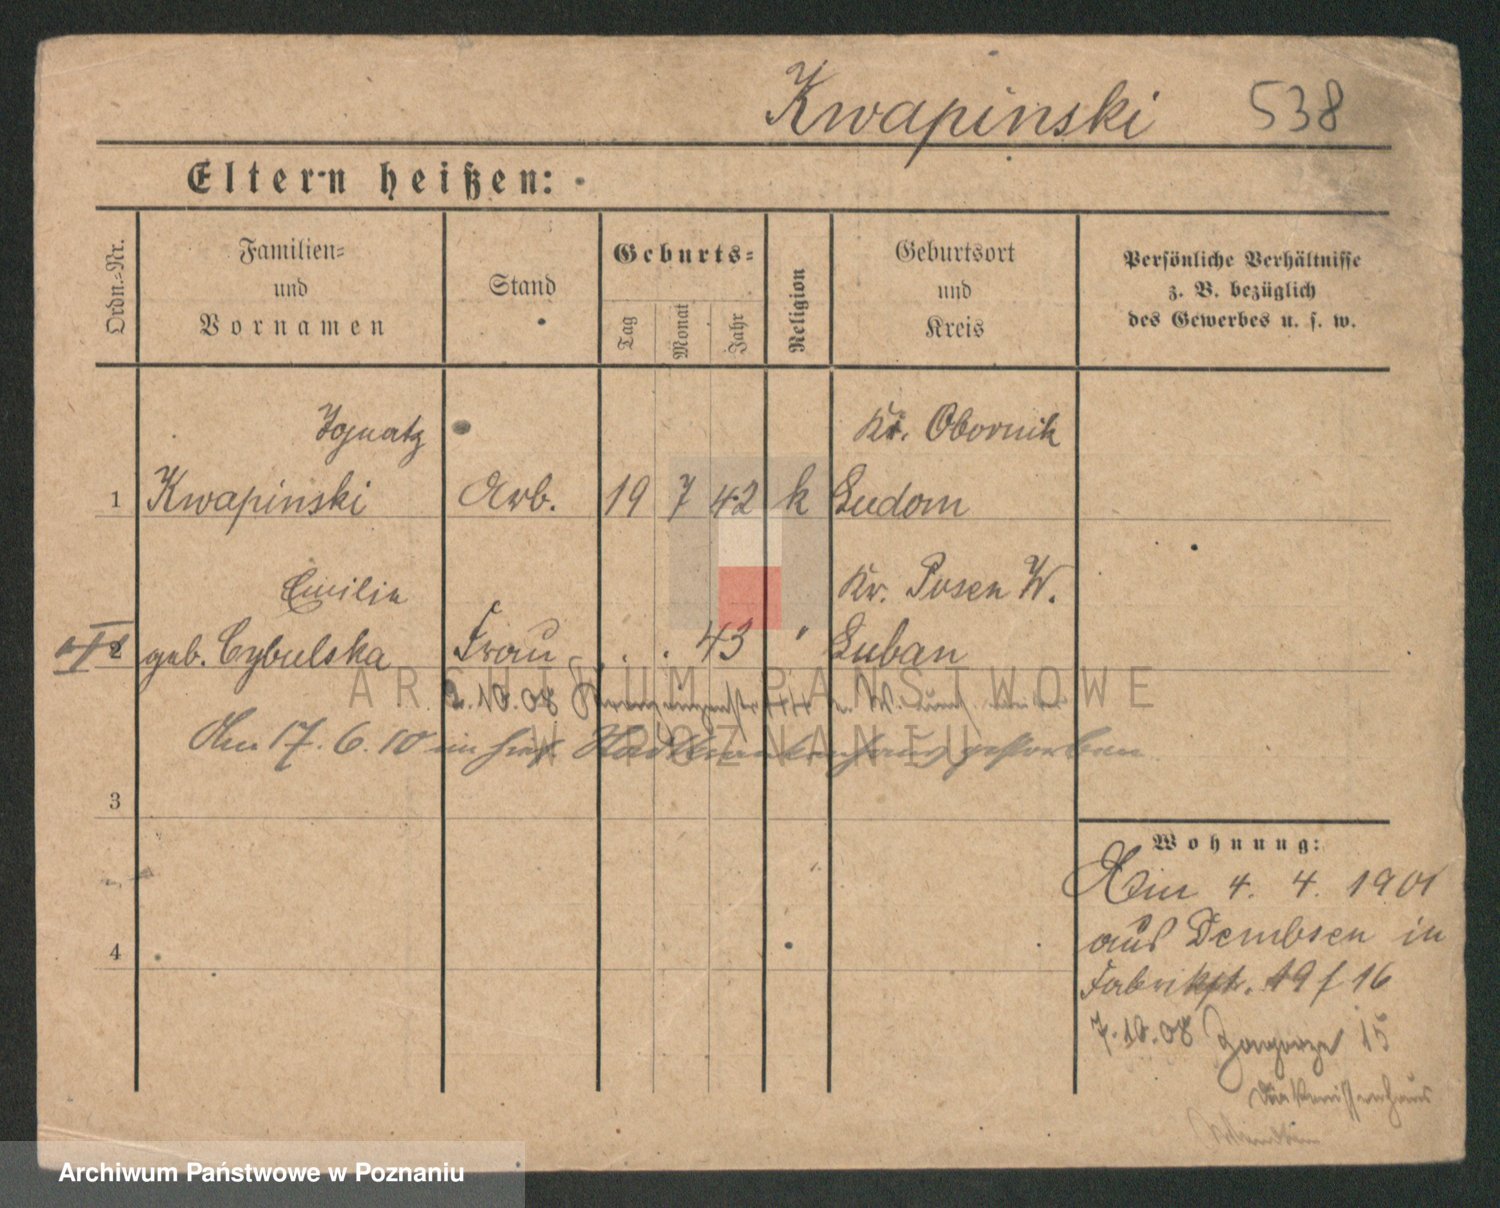 Kwapinski 538
Eltern heißen:
Ordn.-Nr.
Familien-
und
Vornamen
Stand
Geburts-
Tag
Monat
Jahr
Religion
Geburtsort
und
Kreis
Persönliche Verhältnisse
z. B. bezüglich
des Gewerbes u. s. w.
Ignatz Kr. Obornik
1 Kwapinski Arb. 19 7 42 k Ludom
Emilia Kr. Posen W.
2 geb. Cybulska Frau . . 43 " Luban
ARCHIWUM PAŃSTWOWE
W POZNANIU
2.10.08
Am 17.6.10 im hies. Stadtkrankenhaus gestorben
3
4
Wohnung:
Am 4. 4. 1901
aus Dembsen in
Fabrikstr. 19 f 16
7.10.08 Zagorze 15
Diakonissenhaus
Archiwum Państwowe w Poznaniu